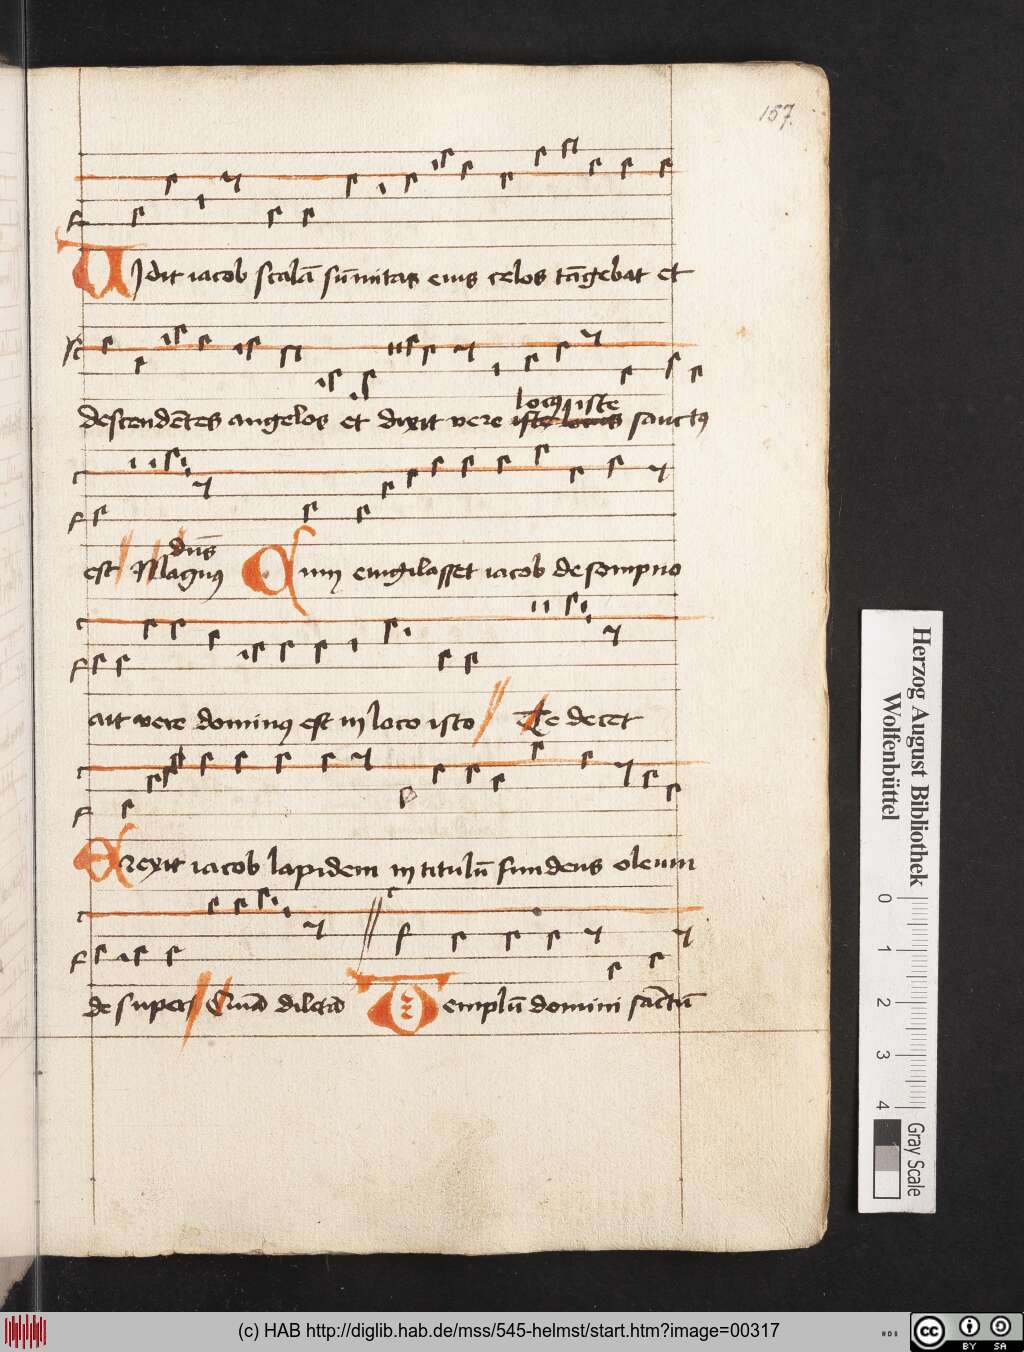 157.
Vidit iacob scalā sūmitas eius celos tāgebat et
descendētes angelos et dixit vere iste locus sanctus
locus iste
est Magnus
dns̄
Cum euigilasset iacob de sompno
ait vere dominus est in loco isto Te decet
Erexit iacob lapidem in titulū fundens oleum
desuper Quā dilctā Templū domini sāctū
Herzog August Bibliothek
Wolfenbüttel
0 1 2 3 4
Gray Scale
(c) HAB http://diglib.hab.de/mss/545-helmst/start.htm?image=00317
cc BY SA